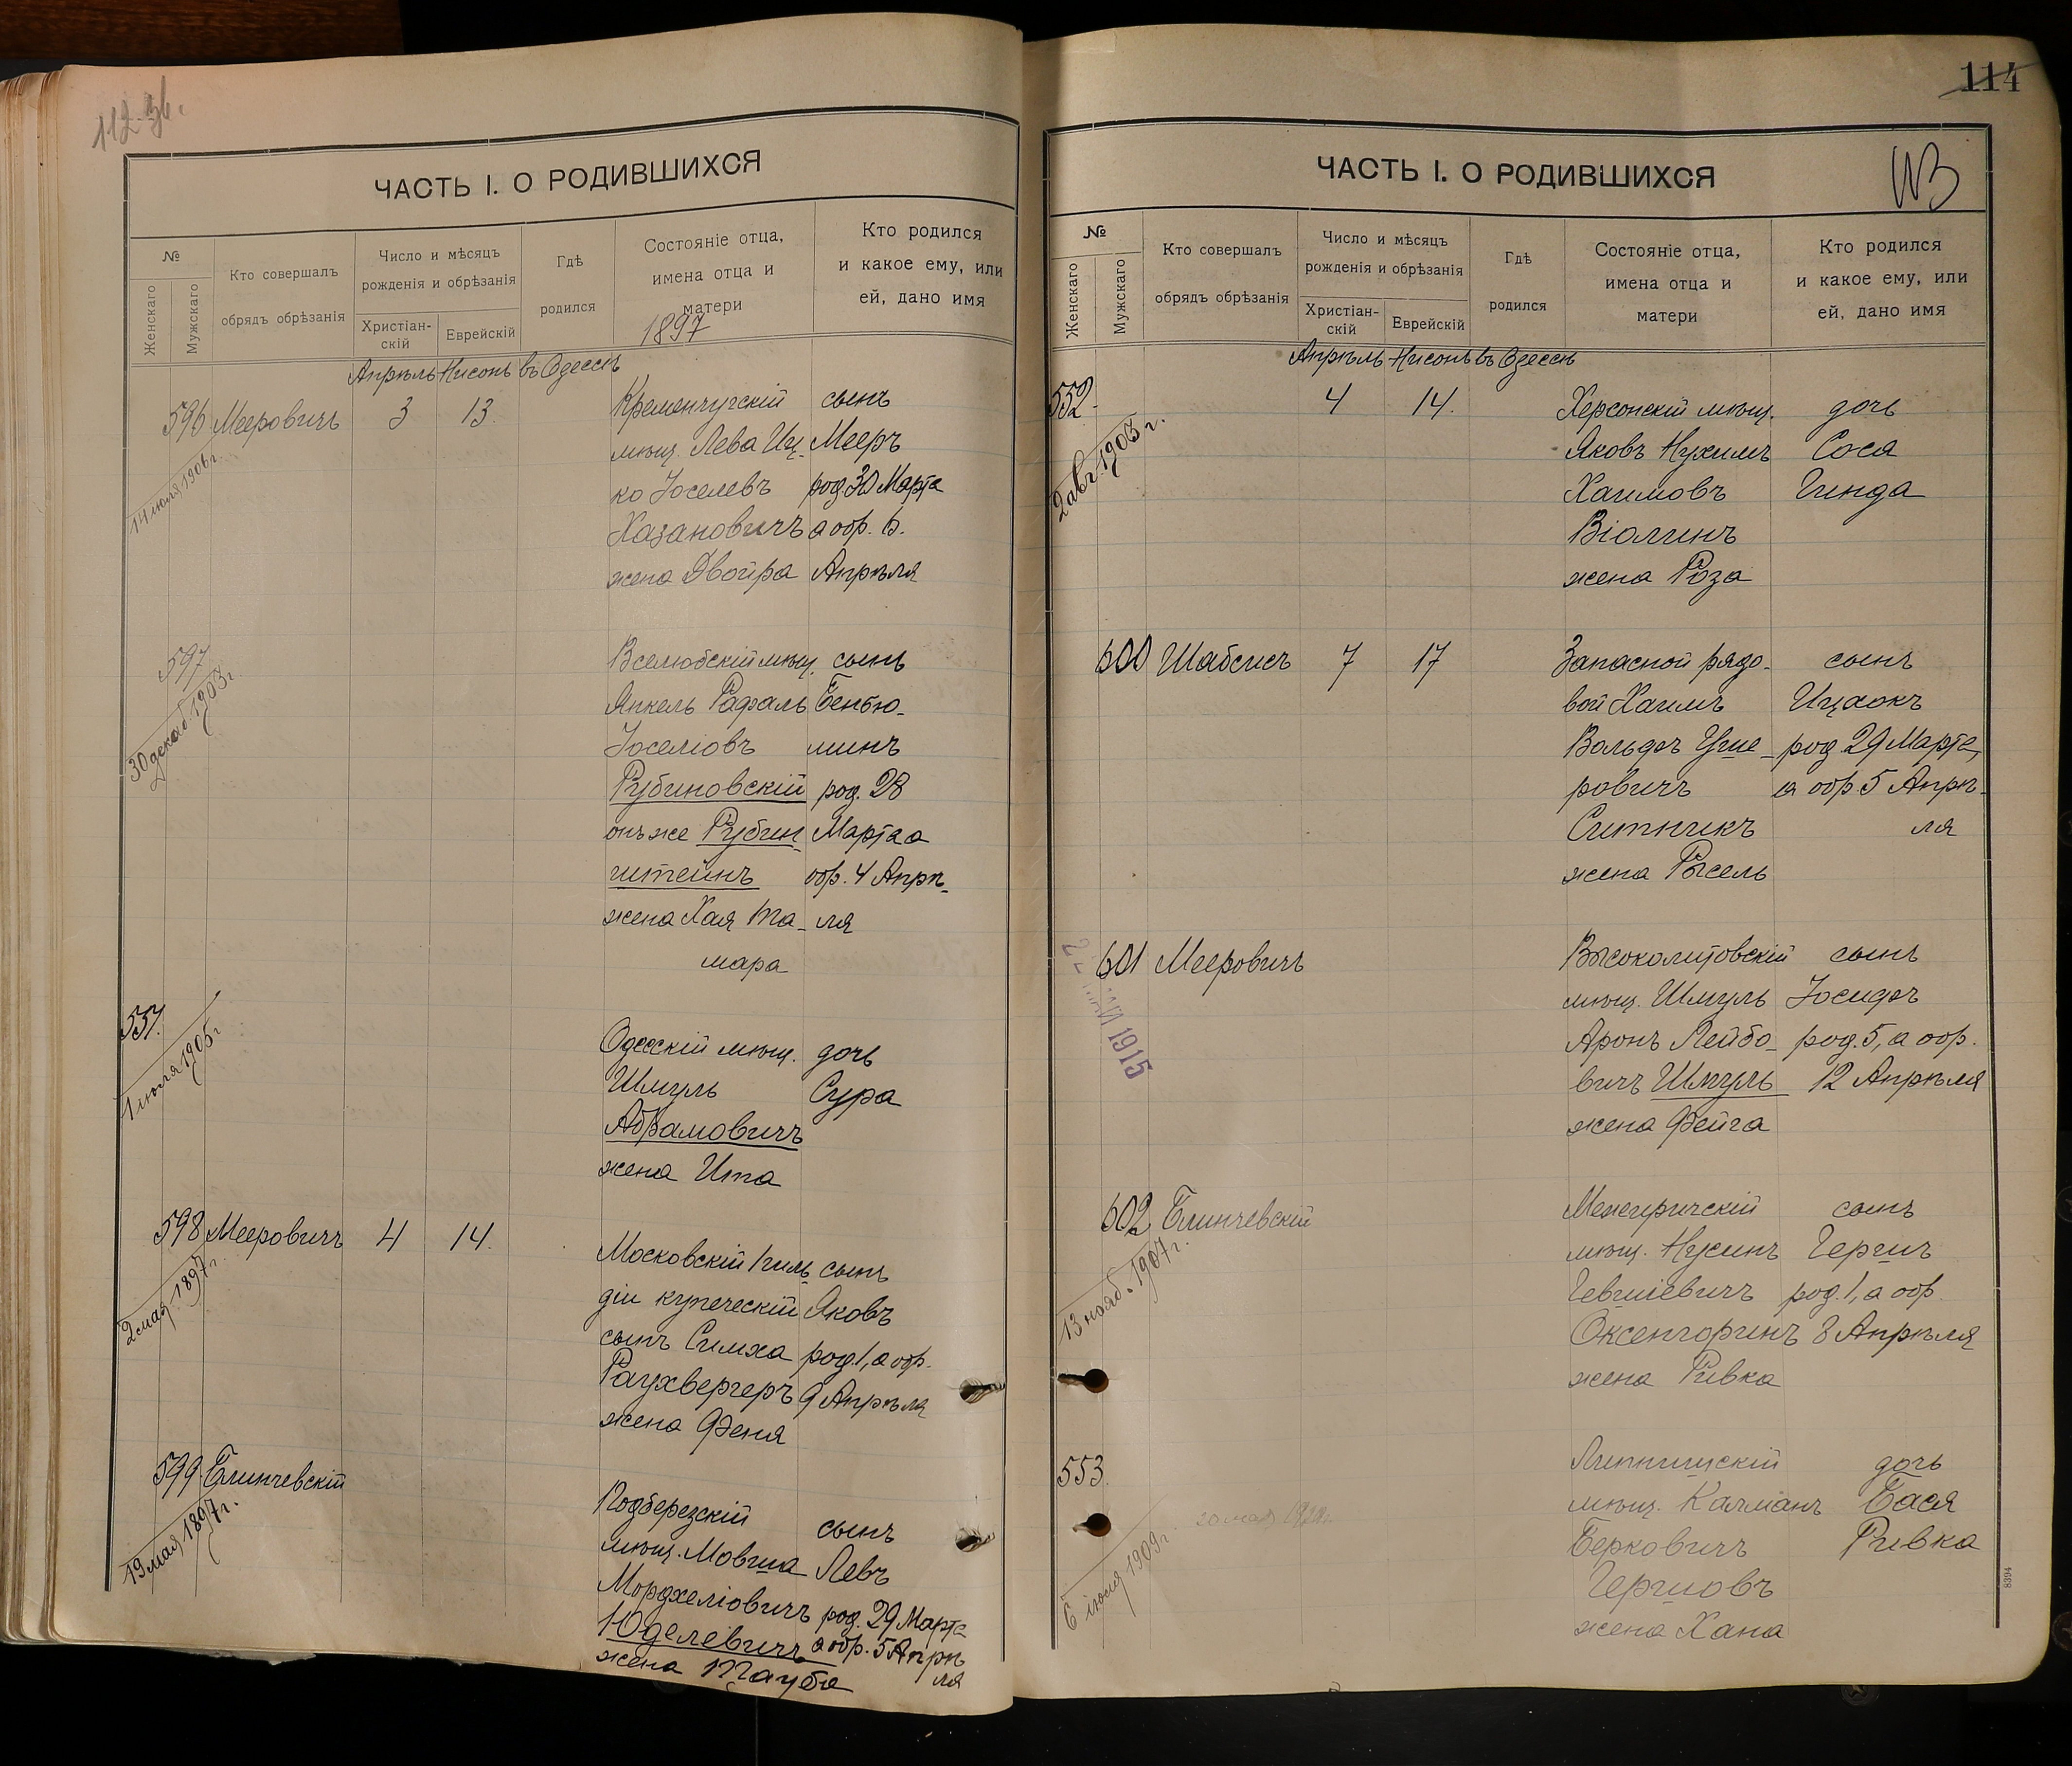 112 зв.
ЧАСТЬ I. О РОДИВШИХСЯ
№
Женскаго
Мужскаго
Кто совершалъ
обрядъ обрѣзанія
Число и мѣсяцъ
рожденія и обрѣзанія
Христіан-
скій
Еврейскій
Гдѣ
родился
Состояніе отца,
имена отца и
матери
1897
Кто родился
и какое ему, или
ей, дано имя
Апрѣль Нисонъ въ Одессѣ
596 Мееровичъ 3 13. Кременчугскій сынъ
14 июля 1906 г.
мѣщ. Лева Иц- Мееръ
ко Іоселевъ род. 30 Марта
Хазановичъ а обр. 6.
жена Двойра Апрѣля
597 Вселюбскій мѣщ. сынъ
30 декаб. 1903 г.
Янкель Рафаль Бенью-
Іоселіовъ минъ
Рубиновскій род. 28
онъ же Рубин- Марта а
штейнъ обр. 4 Апрѣ-
жена Хая Та- ля
мара
557.
1 июля 1905 г
Одесскій мѣщ. дочь
Шмуль Сура
Абрамовичъ
жена Ита
598 Мееровичъ 4 14. Московскій Гиль- сынъ
2 мая 1897 г.
діи купеческій Яковъ
сынъ Симха род. 1, а обр.
Раухвергеръ 9 Апрѣля
жена Феня
599 Блинчевскій Подберезскій сынъ
19 мая 1897 г.
мѣщ. Мовша Левъ
Мордхеліовичъ род. 29 Марта
Юделевичъ а обр. 5 Апрѣ
жена Таубе ля
114
ЧАСТЬ I. О РОДИВШИХСЯ
113
№
Женскаго
Мужскаго
Кто совершалъ
обрядъ обрѣзанія
Число и мѣсяцъ
рожденія и обрѣзанія
Христіан-
скій
Еврейскій
Гдѣ
родился
Состояніе отца,
имена отца и
матери
Кто родился
и какое ему, или
ей, дано имя
Апрѣль Нисонъ въ Одессѣ
552. 4 14. Херсонскій мѣщ. дочь
2 авг. 1903 г.
Яковъ Нухимъ Соса
Хаимовъ Гинда
Віолинъ
жена Роза
600 Шабсисъ 7 17 Запасной рядо- сынъ
вой Хаимъ Ицаокъ
Вольфъ Уше- род. 29 Марта,
ровичъ а обр. 5 Апрѣ-
Ситникъ ля
жена Рысель
601 Мееровичъ Высоколитовскій сынъ
1915
мѣщ. Шмуль Іосифъ
Аронъ Лейбо- род. 5, а обр.
вичъ Шмуль 12 Апрѣля
жена Фейга
602 Блинчевскій Межиричскій сынъ
13 нояб. 1907 г.
мѣщ. Нусинъ Гершъ
Гевшіевичъ род. 1, а обр.
Оксенгоринъ 8 Апрѣля
жена Ривка
553. Липнишскій дочь
6 июня 1909 г
мѣщ. Калманъ Бася
Берковичъ Ривка
Гершовъ
жена Хана
8394